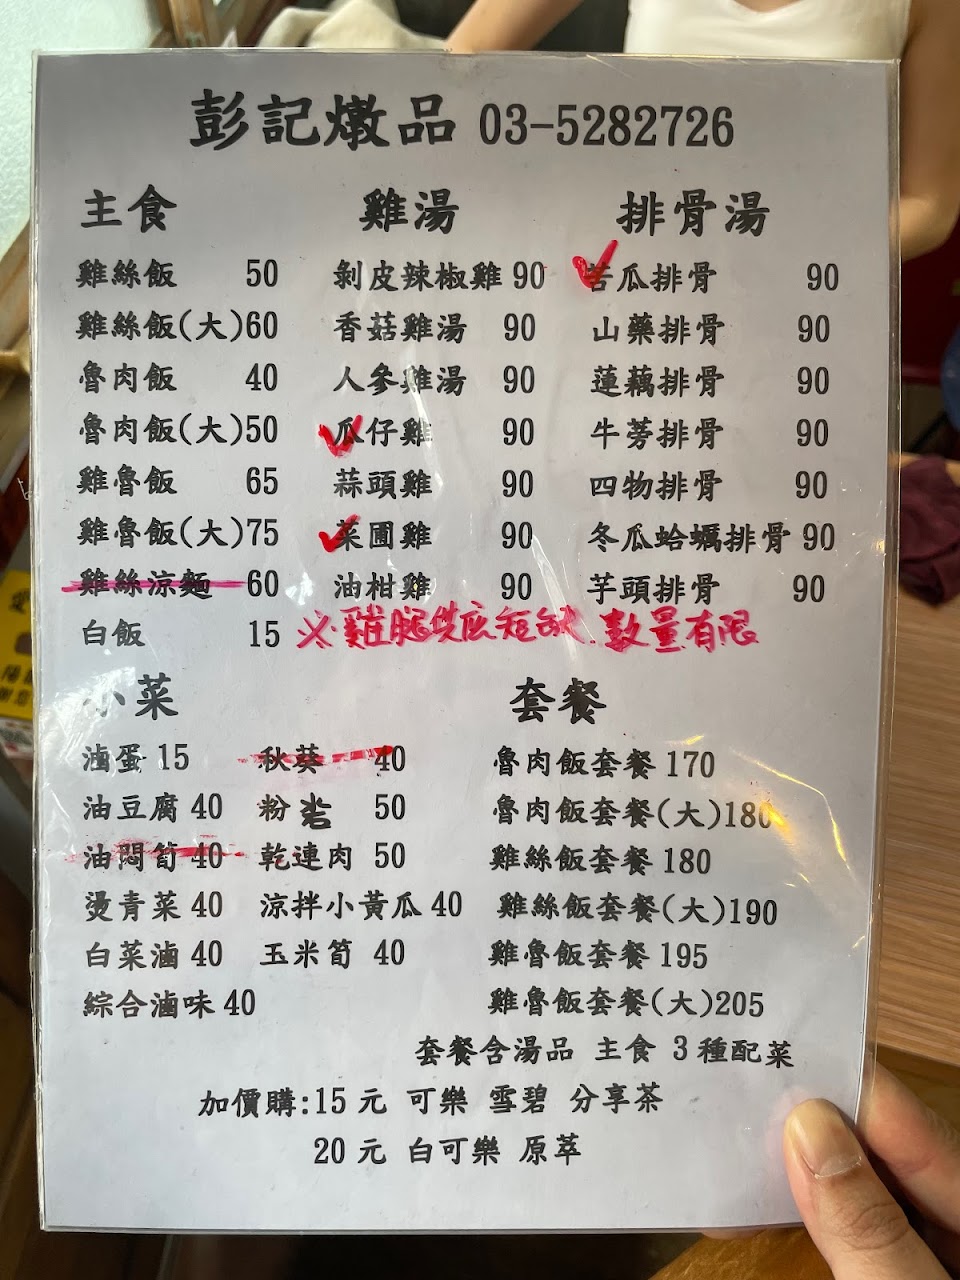 彭記燉品 03-5282726
主食
雞絲飯 50
雞絲飯(大)60
魯肉飯 40
魯肉飯(大)50
雞魯飯 65
雞魯飯(大)75
雞絲涼麵 60
白飯 15
雞湯
剝皮辣椒雞 90
香菇雞湯 90
人參雞湯 90
瓜仔雞 90
蒜頭雞 90
菜圃雞 90
油柑雞 90
排骨湯
苦瓜排骨 90
山藥排骨 90
蓮藕排骨 90
牛蒡排骨 90
四物排骨 90
冬瓜蛤蠣排骨 90
芋頭排骨 90
※雞腿供應短缺.數量有限
小菜
滷蛋 15
油豆腐 40
油悶筍 40
燙青菜 40
白菜滷 40
綜合滷味 40
秋葵 40
粉 50
乾連肉 50
涼拌小黃瓜 40
玉米筍 40
套餐
魯肉飯套餐 170
魯肉飯套餐(大)180
雞絲飯套餐 180
雞絲飯套餐(大)190
雞魯飯套餐 195
雞魯飯套餐(大)205
套餐含湯品 主食 3種配菜
加價購:15元 可樂 雪碧 分享茶
20元 白可樂 原萃